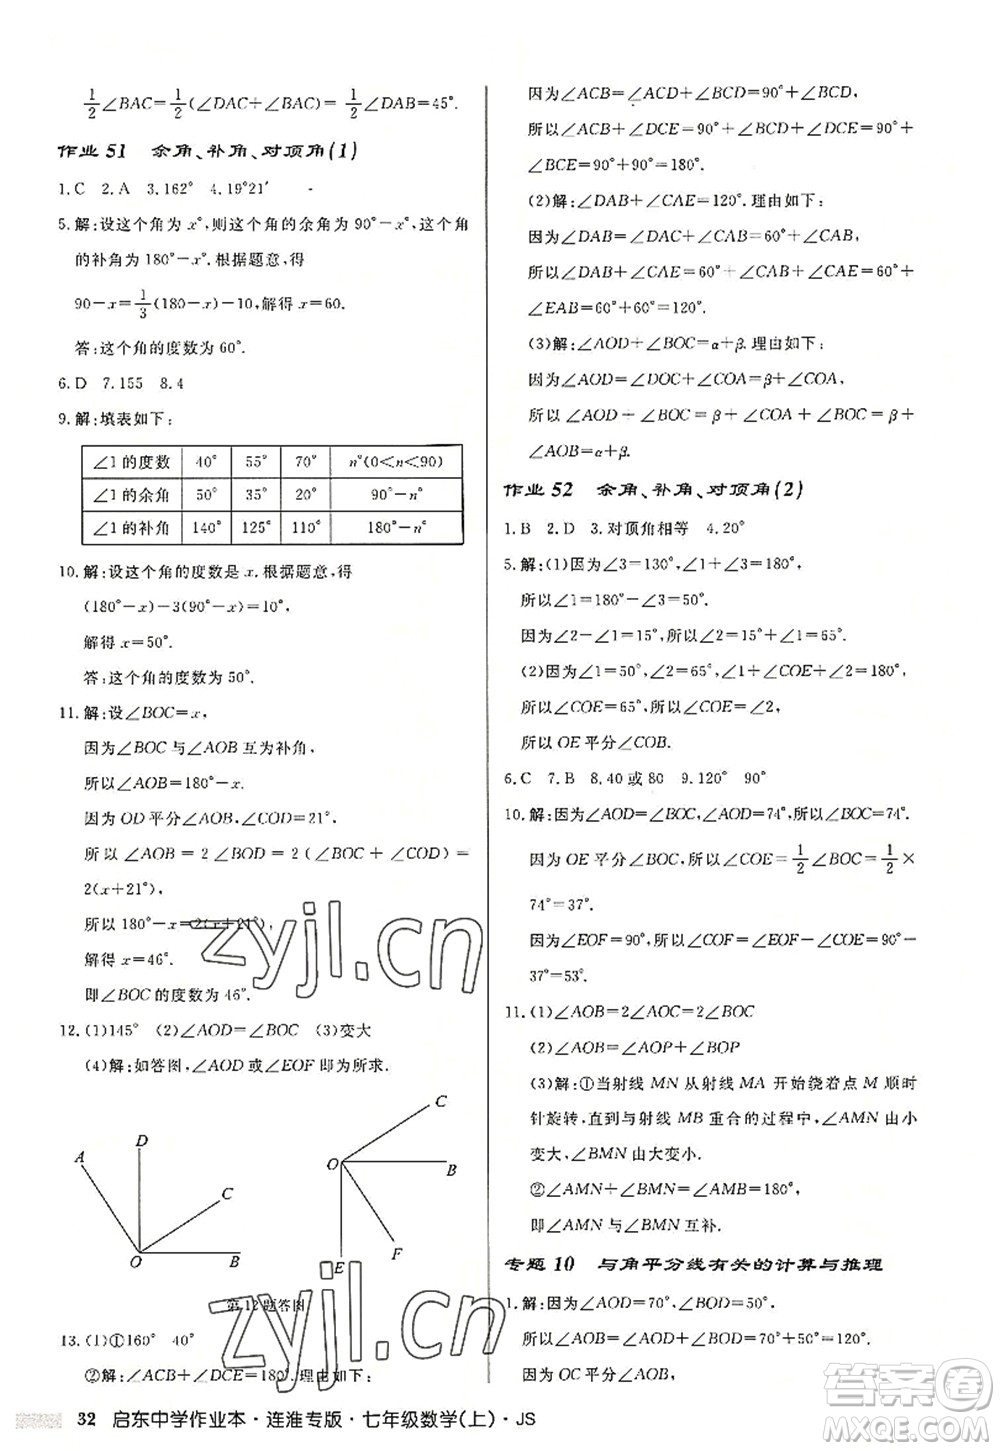 1/2∠BAC=1/2(∠DAC+∠BAC)=1/2∠DAB=45°.
作业 51 余角、补角、对顶角(1)
1.C 2.A 3.162° 4.19°21′
5.解:设这个角为 x°,则这个角的余角为 90°-x°,这个角
的补角为 180°-x°.根据题意,得
90-x=1/3(180-x)-10,解得 x=60.
答:这个角的度数为 60°.
6.D 7.155 8.4
9.解:填表如下:
∠1 的度数 40° 55° 70° n°(0<n<90)
∠1 的余角 50° 35° 20° 90°-n°
∠1 的补角 140° 125° 110° 180°-n°
10.解:设这个角的度数是 x.根据题意,得
(180°-x)-3(90°-x)=10°,
解得 x=50°.
答:这个角的度数为 50°.
11.解:设∠BOC=x,
因为∠BOC 与∠AOB 互为补角,
所以∠AOB=180°-x.
因为 OD 平分∠AOB,∠COD=21°,
所以∠AOB=2∠BOD=2(∠BOC+∠COD)=
2(x+21°),
所以 180°-x=2(x+21°),
解得 x=46°.
即∠BOC 的度数为 46°.
12.(1)145° (2)∠AOD=∠BOC (3)变大
(4)解:如答图,∠AOD 或∠EOF 即为所求.
A D C O B
C O B E F
第 12 题答图
13.(1)①160° 40°
②解:∠ACB+∠DCE=180°.理由如下:
因为∠ACB=∠ACD+∠BCD=90°+∠BCD,
所以∠ACB+∠DCE=90°+∠BCD+∠DCE=90°+
∠BCE=90°+90°=180°.
(2)解:∠DAB+∠CAE=120°.理由如下:
因为∠DAB=∠DAC+∠CAB=60°+∠CAB,
所以∠DAB+∠CAE=60°+∠CAB+∠CAE=60°+
∠EAB=60°+60°=120°.
(3)解:∠AOD+∠BOC=α+β.理由如下:
因为∠AOD=∠DOC+∠COA=β+∠COA,
所以∠AOD+∠BOC=β+∠COA+∠BOC=β+
∠AOB=α+β.
作业 52 余角、补角、对顶角(2)
1.B 2.D 3.对顶角相等 4.20°
5.解:(1)因为∠3=130°,∠1+∠3=180°,
所以∠1=180°-∠3=50°.
因为∠2-∠1=15°,所以∠2=15°+∠1=65°.
(2)因为∠1=50°,∠2=65°,∠1+∠COE+∠2=180°,
所以∠COE=65°,所以∠COE=∠2,
所以 OE 平分∠COB.
6.C 7.B 8.40 或 80 9.120° 90°
10.解:因为∠AOD=∠BOC,∠AOD=74°,所以∠BOC=74°.
因为 OE 平分∠BOC,所以∠COE=1/2∠BOC=1/2×
74°=37°.
因为∠EOF=90°,所以∠COF=∠EOF-∠COE=90°-
37°=53°.
11.(1)∠AOB=2∠AOC=2∠BOC
(2)∠AOB=∠AOP+∠BOP
(3)解:①当射线 MN 从射线 MA 开始绕着点 M 顺时
针旋转,直到与射线 MB 重合的过程中,∠AMN 由小
变大,∠BMN 由大变小.
②∠AMN+∠BMN=∠AMB=180°,
即∠AMN 与∠BMN 互补.
专题 10 与角平分线有关的计算与推理
1.解:因为∠AOD=70°,∠BOD=50°.
所以∠AOB=∠AOD+∠BOD=70°+50°=120°.
因为 OC 平分∠AOB,
zyjl.cn
zyjl.cn
答案圈
MXQE.COM
32 启东中学作业本·连淮专版·七年级数学(上)·JS